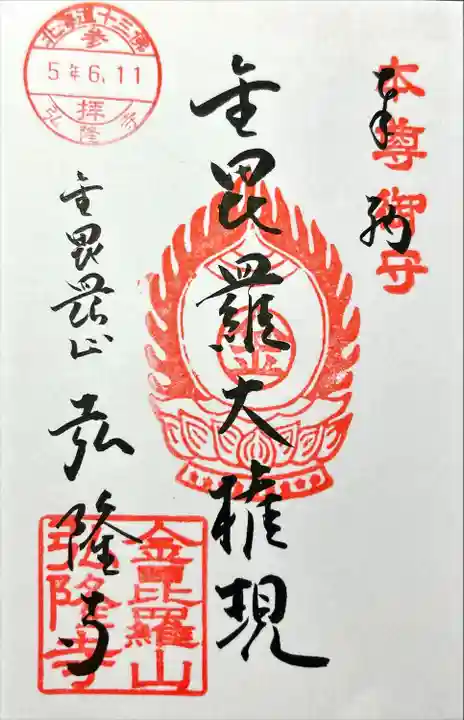 本尊御守
奉拝
金毘羅大権現
金
北五十三佛
参
5年6.11
拝
弘隆寺
金毘羅山 弘隆寺
金毘羅山
弘隆寺